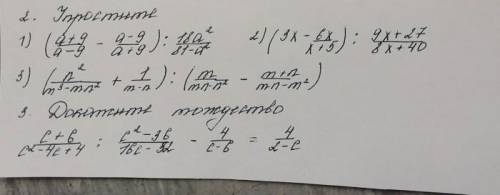 2. Упростите
1) (a+9/a-9 - a-9/a+9) : 18a²/81-a² 2) (3x - 6x/x+5) : 9x+27/8x+40
3) (n²/m³-mn² + 1/m-n) : (m/mn-n² - m+n/mn-m²)
3. Докажите тождество
c+6/c²-4c+4 : c²-36/16c-32 - 4/c-6 = 4/2-c